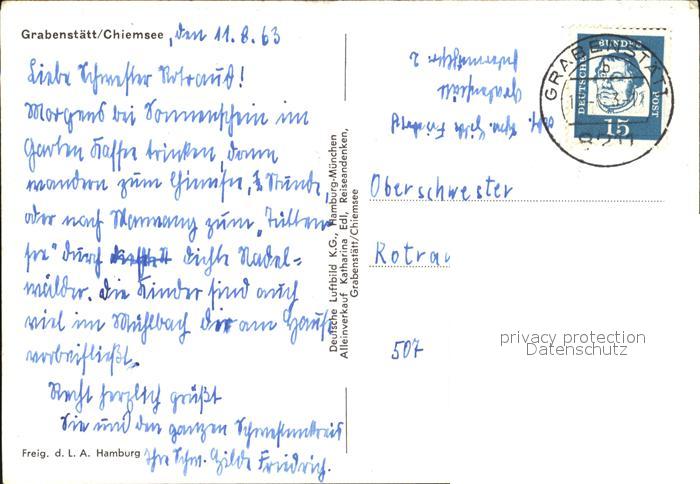 Grabenstätt/Chiemsee, den 11.8.63
Liebe Schwester Rotraut!
Morgens bei Sonnenschein im
Garten Kaffee trinken, dann
wandern zum Chiemsee, ½ Stunde,
oder nach Marwang zum "Tütten-
see" durch dichte Nadel=
wälder. Die Kinder sind auch
viel im Mühlbach der am Hause
vorbeifließt.
Recht herzlich grüßt
Sie und den ganzen Schwesternkreis
Ihre Schw. Hilde Friedrich.
Freig. d. L. A. Hamburg
Deutsche Luftbild K.G., Hamburg-München
Alleinverkauf Katharina Edl, Reiseandenken,
Grabenstätt/Chiemsee
Abs. Schw. Hilde Friedrich
Grabenstätt
2
GRABENSTÄTT
b
8211
DEUTSCHE BUNDESPOST
15
Oberschwester
Rotrau
507
privacy protection
Datenschutz